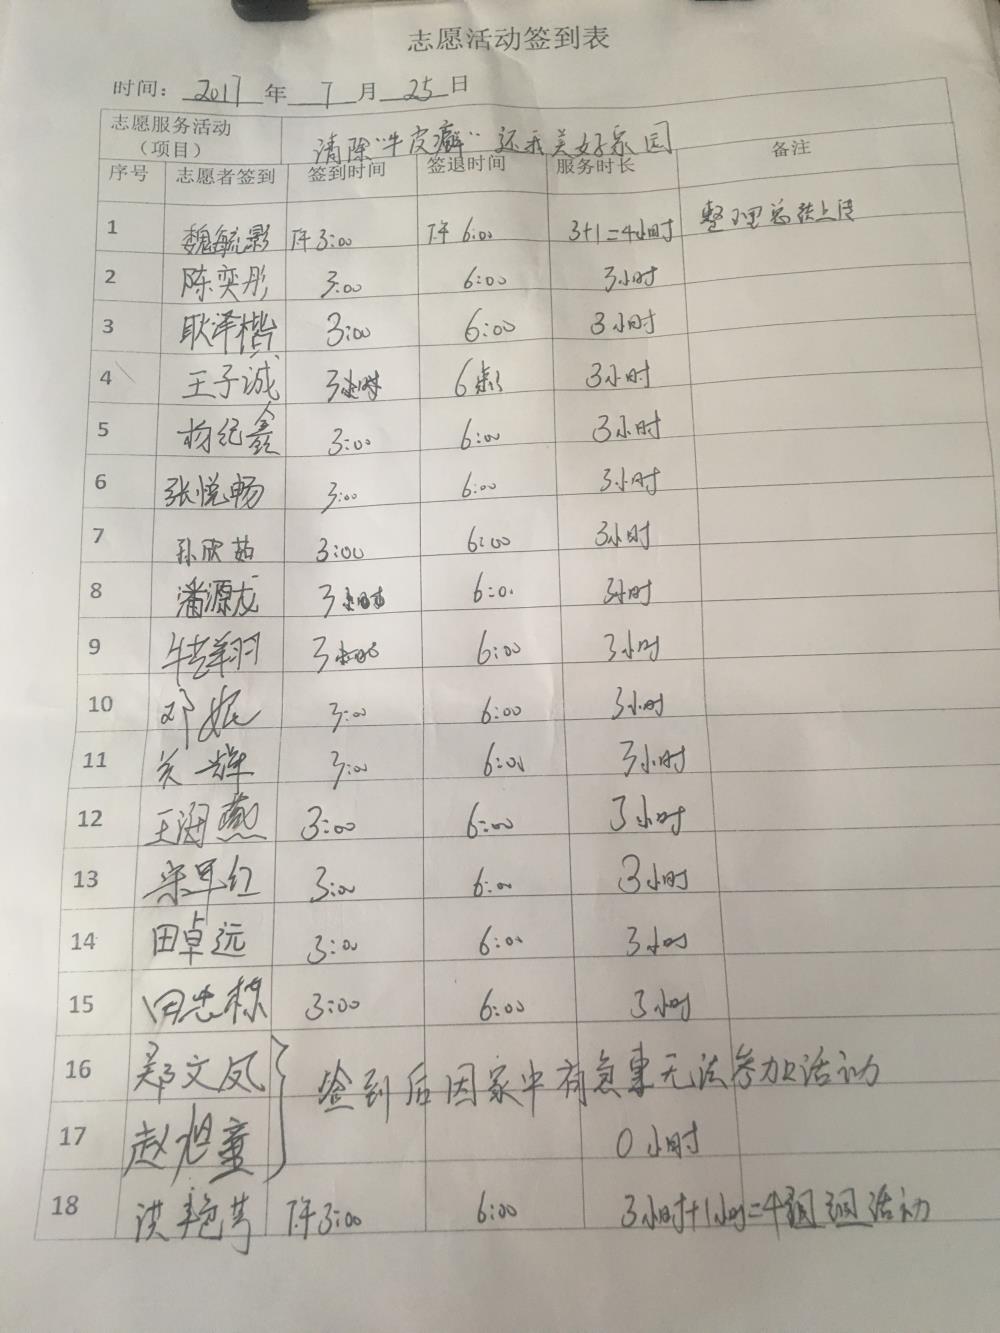 志愿活动签到表
时间：2017年7月25日
志愿服务活动（项目） 清除"牛皮癣" 还我美好家园
序号 志愿者签到 签到时间 签退时间 服务时长 备注
1 魏毓影 下午3:00 下午6:00 3+1=4小时 整理总结上传
2 陈奕彤 3:00 6:00 3小时
3 耿泽楷 3:00 6:00 3小时
4 王子诚 3 6 3小时
5 杨纪鑫 3:00 6:00 3小时
6 张悦畅 3:00 6:00 3小时
7 孙欣茹 3:00 6:00 3小时
8 潘源龙 3 6:0. 3小时
9 牛艺翔羽 3 6:00 3小时
10 邓妮 3:00 6:00 3小时
11 关辉 3:00 6:00 3小时
12 王润燕 3:00 6:00 3小时
13 宋早红 3:00 6:00 3小时
14 田卓远 3:00 6:00 3小时
15 田志栋 3:00 6:00 3小时
16 郑文凤 签到后因家中有急事无法参加活动
17 赵旭童 0小时
18 洪艳芳 下午3:00 6:00 3小时+1小时=4 活动